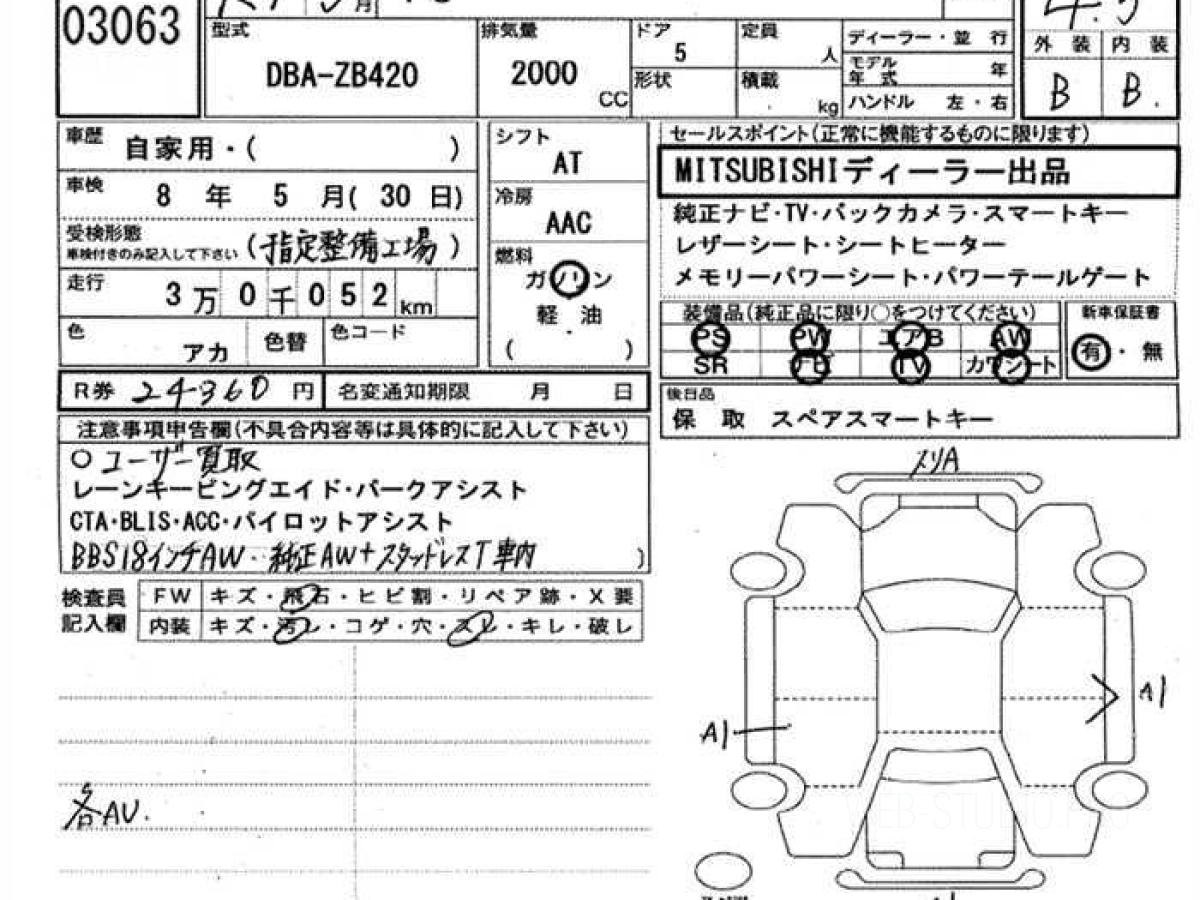 03063
月
型式
DBA-ZB420
排気量
2000
CC
ドア
5
形状
定員
人
積載
kg
ディーラー・並 行
モデル
年 式
年
ハンドル 左・右
外 装
内 装
B
B.
車歴
自家用・( )
車検
8 年 5 月( 30 日)
受検形態
車検付きのみ記入して下さい
(指定整備工場)
走行
3万0千052km
色
アカ
色替
色コード
シフト
AT
冷房
AAC
燃料
ガソリン
軽 油
( )
セールスポイント(正常に機能するものに限ります)
MITSUBISHIディーラー出品
純正ナビ・TV・バックカメラ・スマートキー
レザーシート・シートヒーター
メモリーパワーシート・パワーテールゲート
装備品(純正品に限り〇をつけてください)
PS PW エアB AW
SR ナビ TV カワシート
新車保証書
有・無
R券 24360 円
名変通知期限 月 日
後日品
保 取 スペアスマートキー
注意事項申告欄(不具合内容等は具体的に記入して下さい)
○ユーザー買取
レーンキーピングエイド・パークアシスト
CTA・BLIS・ACC・パイロットアシスト
BBS18インチAW・・純正AW+スタッドレスT車内)
検査員
記入欄
FW キズ・飛石・ヒビ割・リペア跡・X要
内装 キズ・汚レ・コゲ・穴・スレ・キレ・破レ
各AU.
スリA
A1
A1
WEB-STUDIO.PRO